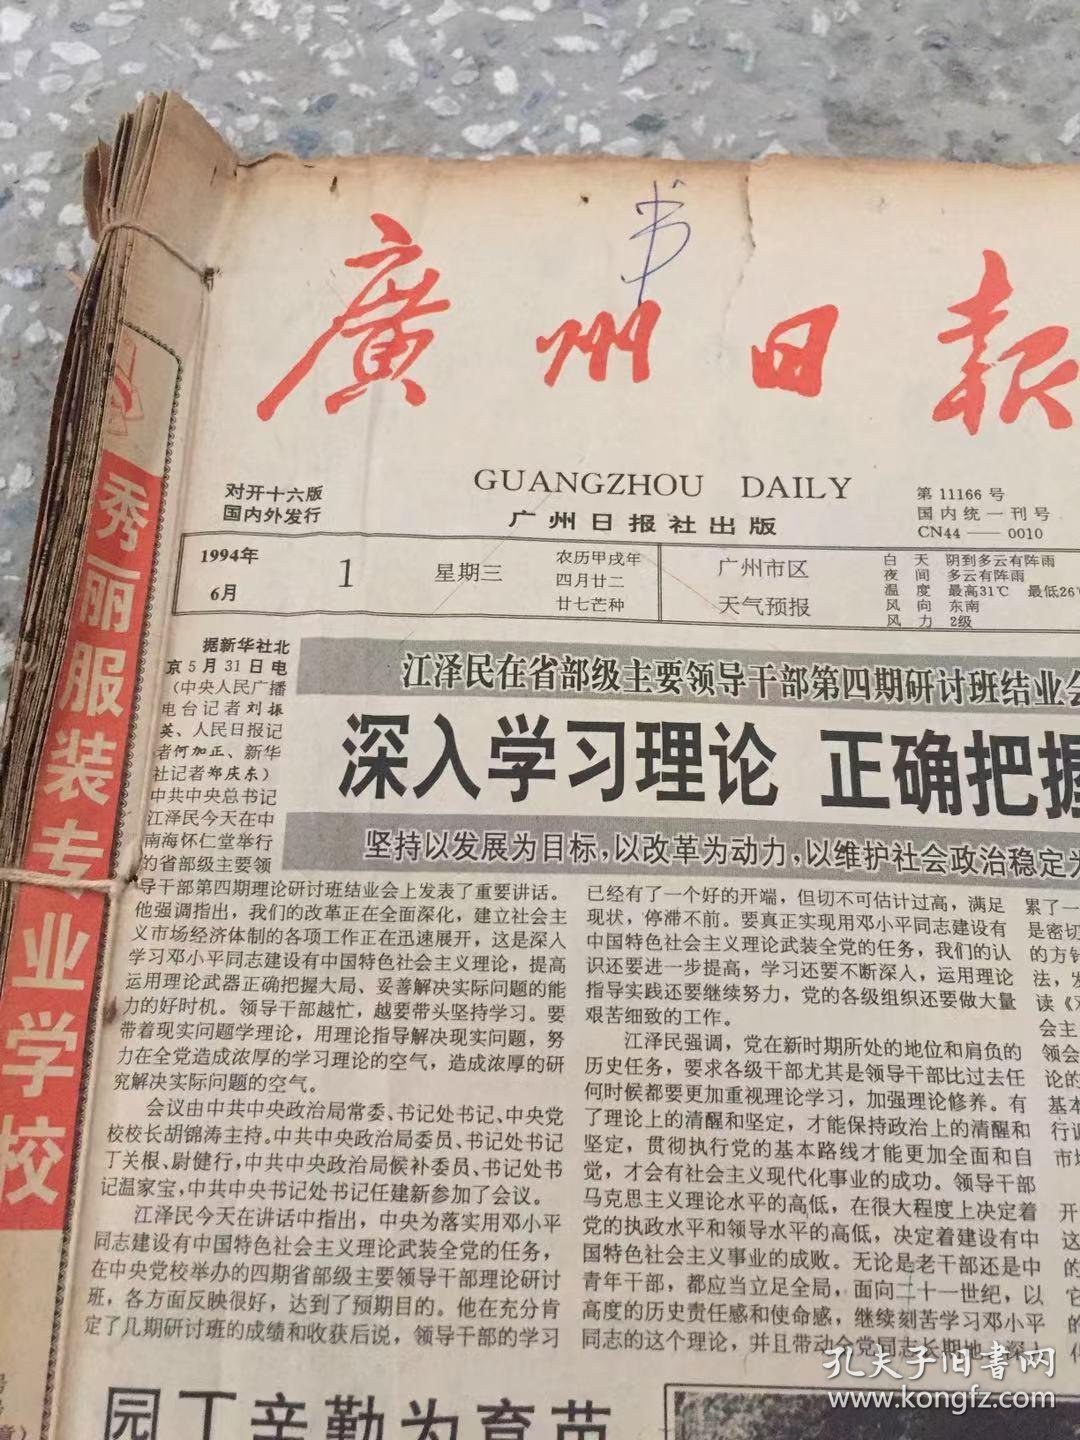 廣州日报
GUANGZHOU DAILY
广州日报社出版
对开十六版
国内外发行
第 11166 号
国内统一刊号
CN44——0010
1994年
6月
1
星期三
农历甲戌年
四月廿二
廿七芒种
广州市区
天气预报
白天 阴到多云有阵雨
夜间 多云有阵雨
温度 最高31℃ 最低26℃
风向 东南
风力 2级
江泽民在省部级主要领导干部第四期研讨班结业会
深入学习理论 正确把握
坚持以发展为目标,以改革为动力,以维护社会政治稳定为
据新华社北
京5月31日电
(中央人民广播
电台记者刘振
英、人民日报记
者何加正、新华
社记者郑庆东)
中共中央总书记
江泽民今天在中
南海怀仁堂举行
的省部级主要领
导干部第四期理论研讨班结业会上发表了重要讲话。
他强调指出,我们的改革正在全面深化,建立社会主
义市场经济体制的各项工作正在迅速展开,这是深入
学习邓小平同志建设有中国特色社会主义理论,提高
运用理论武器正确把握大局、妥善解决实际问题的能
力的好时机。领导干部越忙,越要带头坚持学习。要
带着现实问题学理论,用理论指导解决现实问题,努
力在全党造成浓厚的学习理论的空气,造成浓厚的研
究解决实际问题的空气。
会议由中共中央政治局常委、书记处书记、中央党
校校长胡锦涛主持。中共中央政治局委员、书记处书记
丁关根、尉健行,中共中央政治局候补委员、书记处书
记温家宝,中共中央书记处书记任建新参加了会议。
江泽民今天在讲话中指出,中央为落实用邓小平
同志建设有中国特色社会主义理论武装全党的任务,
在中央党校举办的四期省部级主要领导干部理论研讨
班,各方面反映很好,达到了预期目的。他在充分肯
定了几期研讨班的成绩和收获后说,领导干部的学习
已经有了一个好的开端,但切不可估计过高,满足
现状,停滞不前。要真正实现用邓小平同志建设有
中国特色社会主义理论武装全党的任务,我们的认
识还要进一步提高,学习还要不断深入,运用理论
指导实践还要继续努力,党的各级组织还要做大量
艰苦细致的工作。
江泽民强调,党在新时期所处的地位和肩负的
历史任务,要求各级干部尤其是领导干部比过去任
何时候都要更加重视理论学习,加强理论修养。有
了理论上的清醒和坚定,才能保持政治上的清醒和
坚定,贯彻执行党的基本路线才能更加全面和自
觉,才会有社会主义现代化事业的成功。领导干部
马克思主义理论水平的高低,在很大程度上决定着
党的执政水平和领导水平的高低,决定着建设有中
国特色社会主义事业的成败。无论是老干部还是中
青年干部,都应当立足全局,面向二十一世纪,以
高度的历史责任感和使命感,继续刻苦学习邓小平
同志的这个理论,并且带动全党同志长期地、深入
累了一
是密切
的方针
法,发
会主
领会
论的
基本
行调
市场
开
这
的
它
的
园丁辛勤为育苗
秀丽服装专业学校
孔夫子旧書网
www.kongfz.com